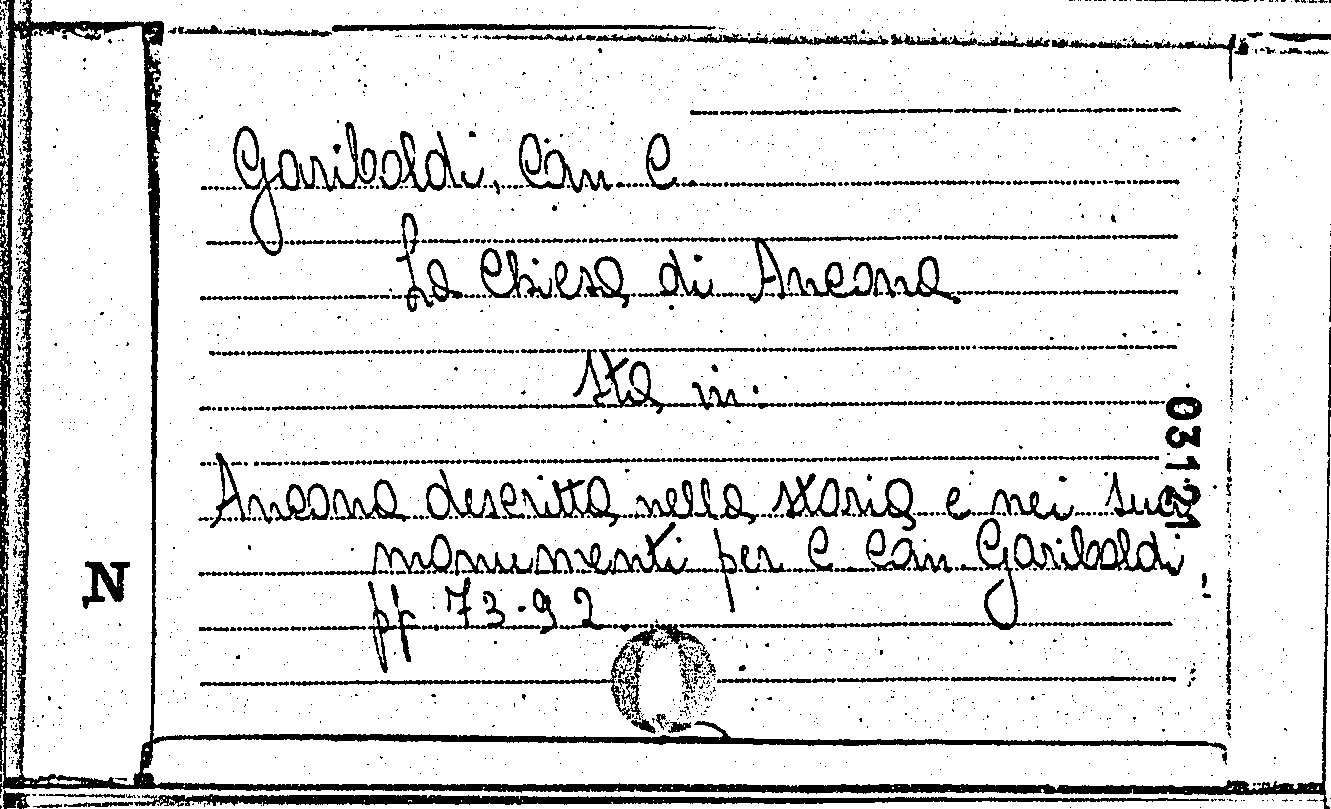 Garibaldi, Can. C.
La Chiesa di Ancona
Sta in:
Ancona descritta nella storia e nei suoi
monumenti per C. Can. Garibaldi
pp. 73-92
03121
N